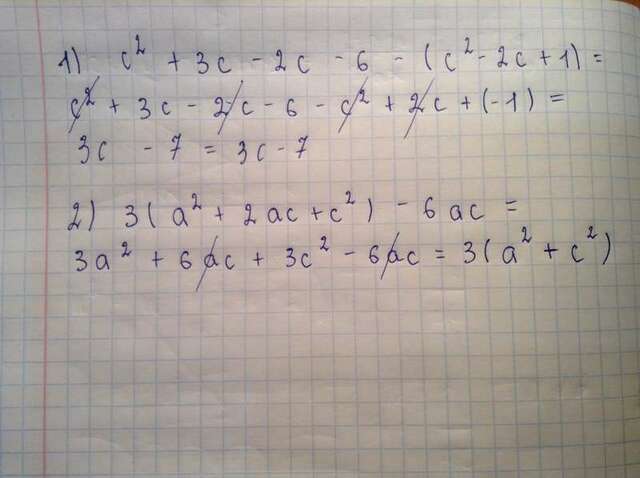 1) c² + 3c - 2c - 6 - (c² - 2c + 1) =
c² + 3c - 2c - 6 - c² + 2c + (-1) =
3c - 7 = 3c - 7
2) 3(a² + 2ac + c²) - 6ac =
3a² + 6ac + 3c² - 6ac = 3(a² + c²)